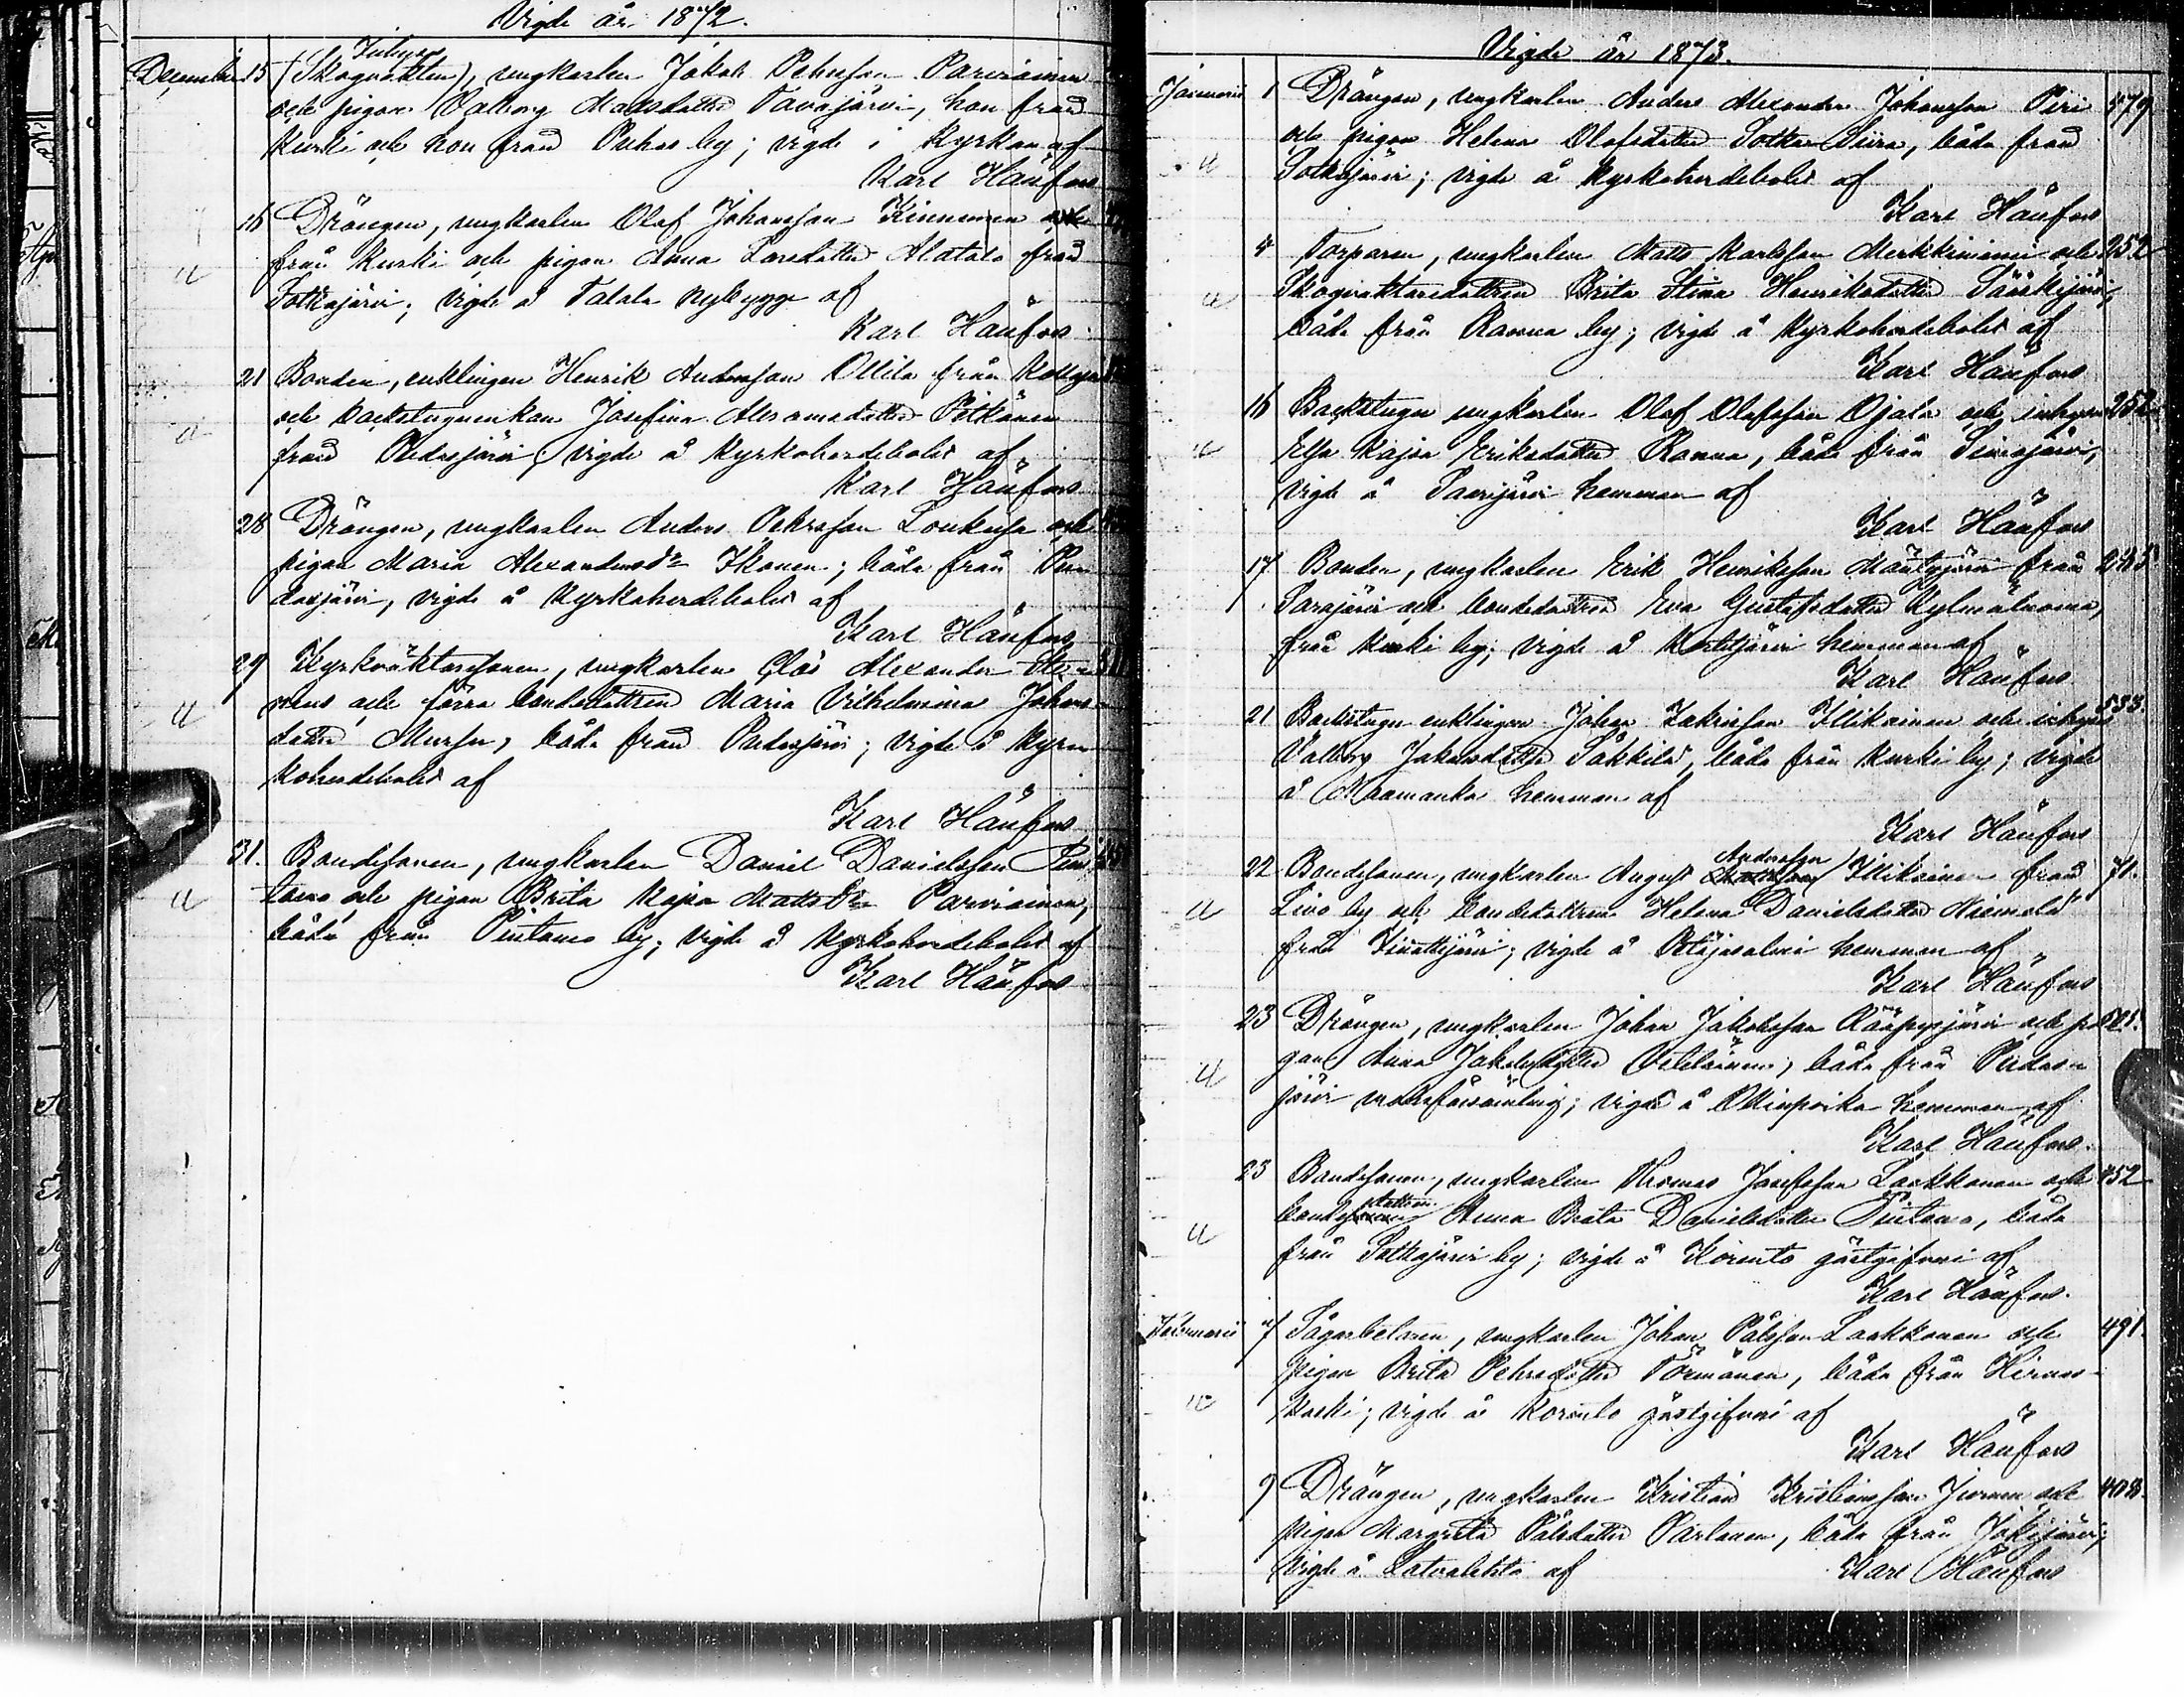 Vigde år 1872.
Inhyses
December 15 (Skogvakten), ungkarlen Jakob Pehrsson Parviainen
och pigan Valborg Matsdotter Tavajärvi, han från
Kurki och hon från Puhos by; vigde i Kyrkan af
Karl Häufors
16 Drängen, ungkarlen Olof Johansson Kinnunen
från Kurki och pigan Anna Larsdotter Alatalo från
Sotkajärvi; vigde å Talala nybygge af
Karl Häufors
21 Bonden, enklingen Henrik Andersson Ollila från
och backstuguenkan Josefina Abramsdotter Pitkänen
från Pudasjärvi; vigde å Kyrkoherdebolet af
Karl Häufors
28 Drängen, ungkarlen Anders Pehrsson Loukusa och
pigan Maria Alexandersdr Ikonen; båda från Pu-
dasjärvi, vigde å Kyrkoherdebolet af
Karl Häufors
29 Kyrkväktaresonen, ungkarlen Clas Alexander
och förra bondedottren Maria Vilhelmina Johans-
dotter Mursu, båda från Pudasjärvi; vigde å Kyr-
koherdebolet af
Karl Häufors
31. Bondesonen, ungkarlen Daniel Danielsson Pin-
tamo och pigan Brita Kajsa Mattsdr Parviainen,
båda från Pintamo by; vigde å Kyrkoherdebolet af
Karl Häufors
Vigde år 1873.
Januarii 1 Drängen, ungkarlen Anders Alexander Johansson Piri 479
och pigan Helena Olofsdotter Sotka-Siira, båda från
Sotkajärvi; vigde å Kyrkoherdebolet af
Karl Häufors
4 Torparen, ungkarlen Matts Karlsson Merkkiniemi och 252
Skogvaktaredottren Brita Stina Henriksdotter Sääskijärvi,
båda från Ranua by; vigde å Kyrkoherdebolet af
Karl Häufors
16 Backstugu ungkarlen Olof Olofsson Ojala och inhyses 252
Elsa Kajsa Eriksdotter Ranua, båda från Simojärvi;
vigde å Saarijärvi hemman af
Karl Häufors
17 Bonden, ungkarlen Erik Henriksson Mäntyjärvi från 245
Sarajärvi och bondedottren Eva Gustafsdotter Kylmäluoma,
från Kurki by; vigde å hemman af
Karl Häufors
21 Backstugu enklingen Johan Zakrisson Illikainen och inhyses 533.
Valborg Jakobsdotter Säkkilä, båda från Kurki by; vigde
å Naamanka hemman af
Karl Häufors
Andersson
22 Bondesonen, ungkarlen August Illikainen från 71.
Livo by och bondedottren Helena Danielsdotter Niemelä
från Iinattijärvi; vigde å hemman af
Karl Häufors
23 Drängen, ungkarlen Johan Jakobsson Rääpysjärvi och pi-
gan Anna Jakobsdotter, båda från Pudas-
järvi moderförsamling; vigde å hemman af
Karl Häufors.
25 Bondesonen, ungkarlen Thomas Josefsson Laakkonen och 452
dottren
bonde Anna Beata Danielsdotter Pintamo, båda
från Sotkajärvi by; vigde å Korento gästgifveri af
Karl Häufors.
Februarii 7 Sågarbetaren, ungkarlen Johan Pålsson Laakkonen och 491.
pigan Brita Pehrsdotter Törmänen, båda från Hirvas-
koski; vigde å Korento gästgifveri af
Karl Häufors
9 Drängen, ungkarlen Kristian Kristiansson Jurmu och 408.
pigan Margreta Pålsdotter Parlanen, båda från Jokijärvi;
vigde å Latvalehto af Karl Häufors